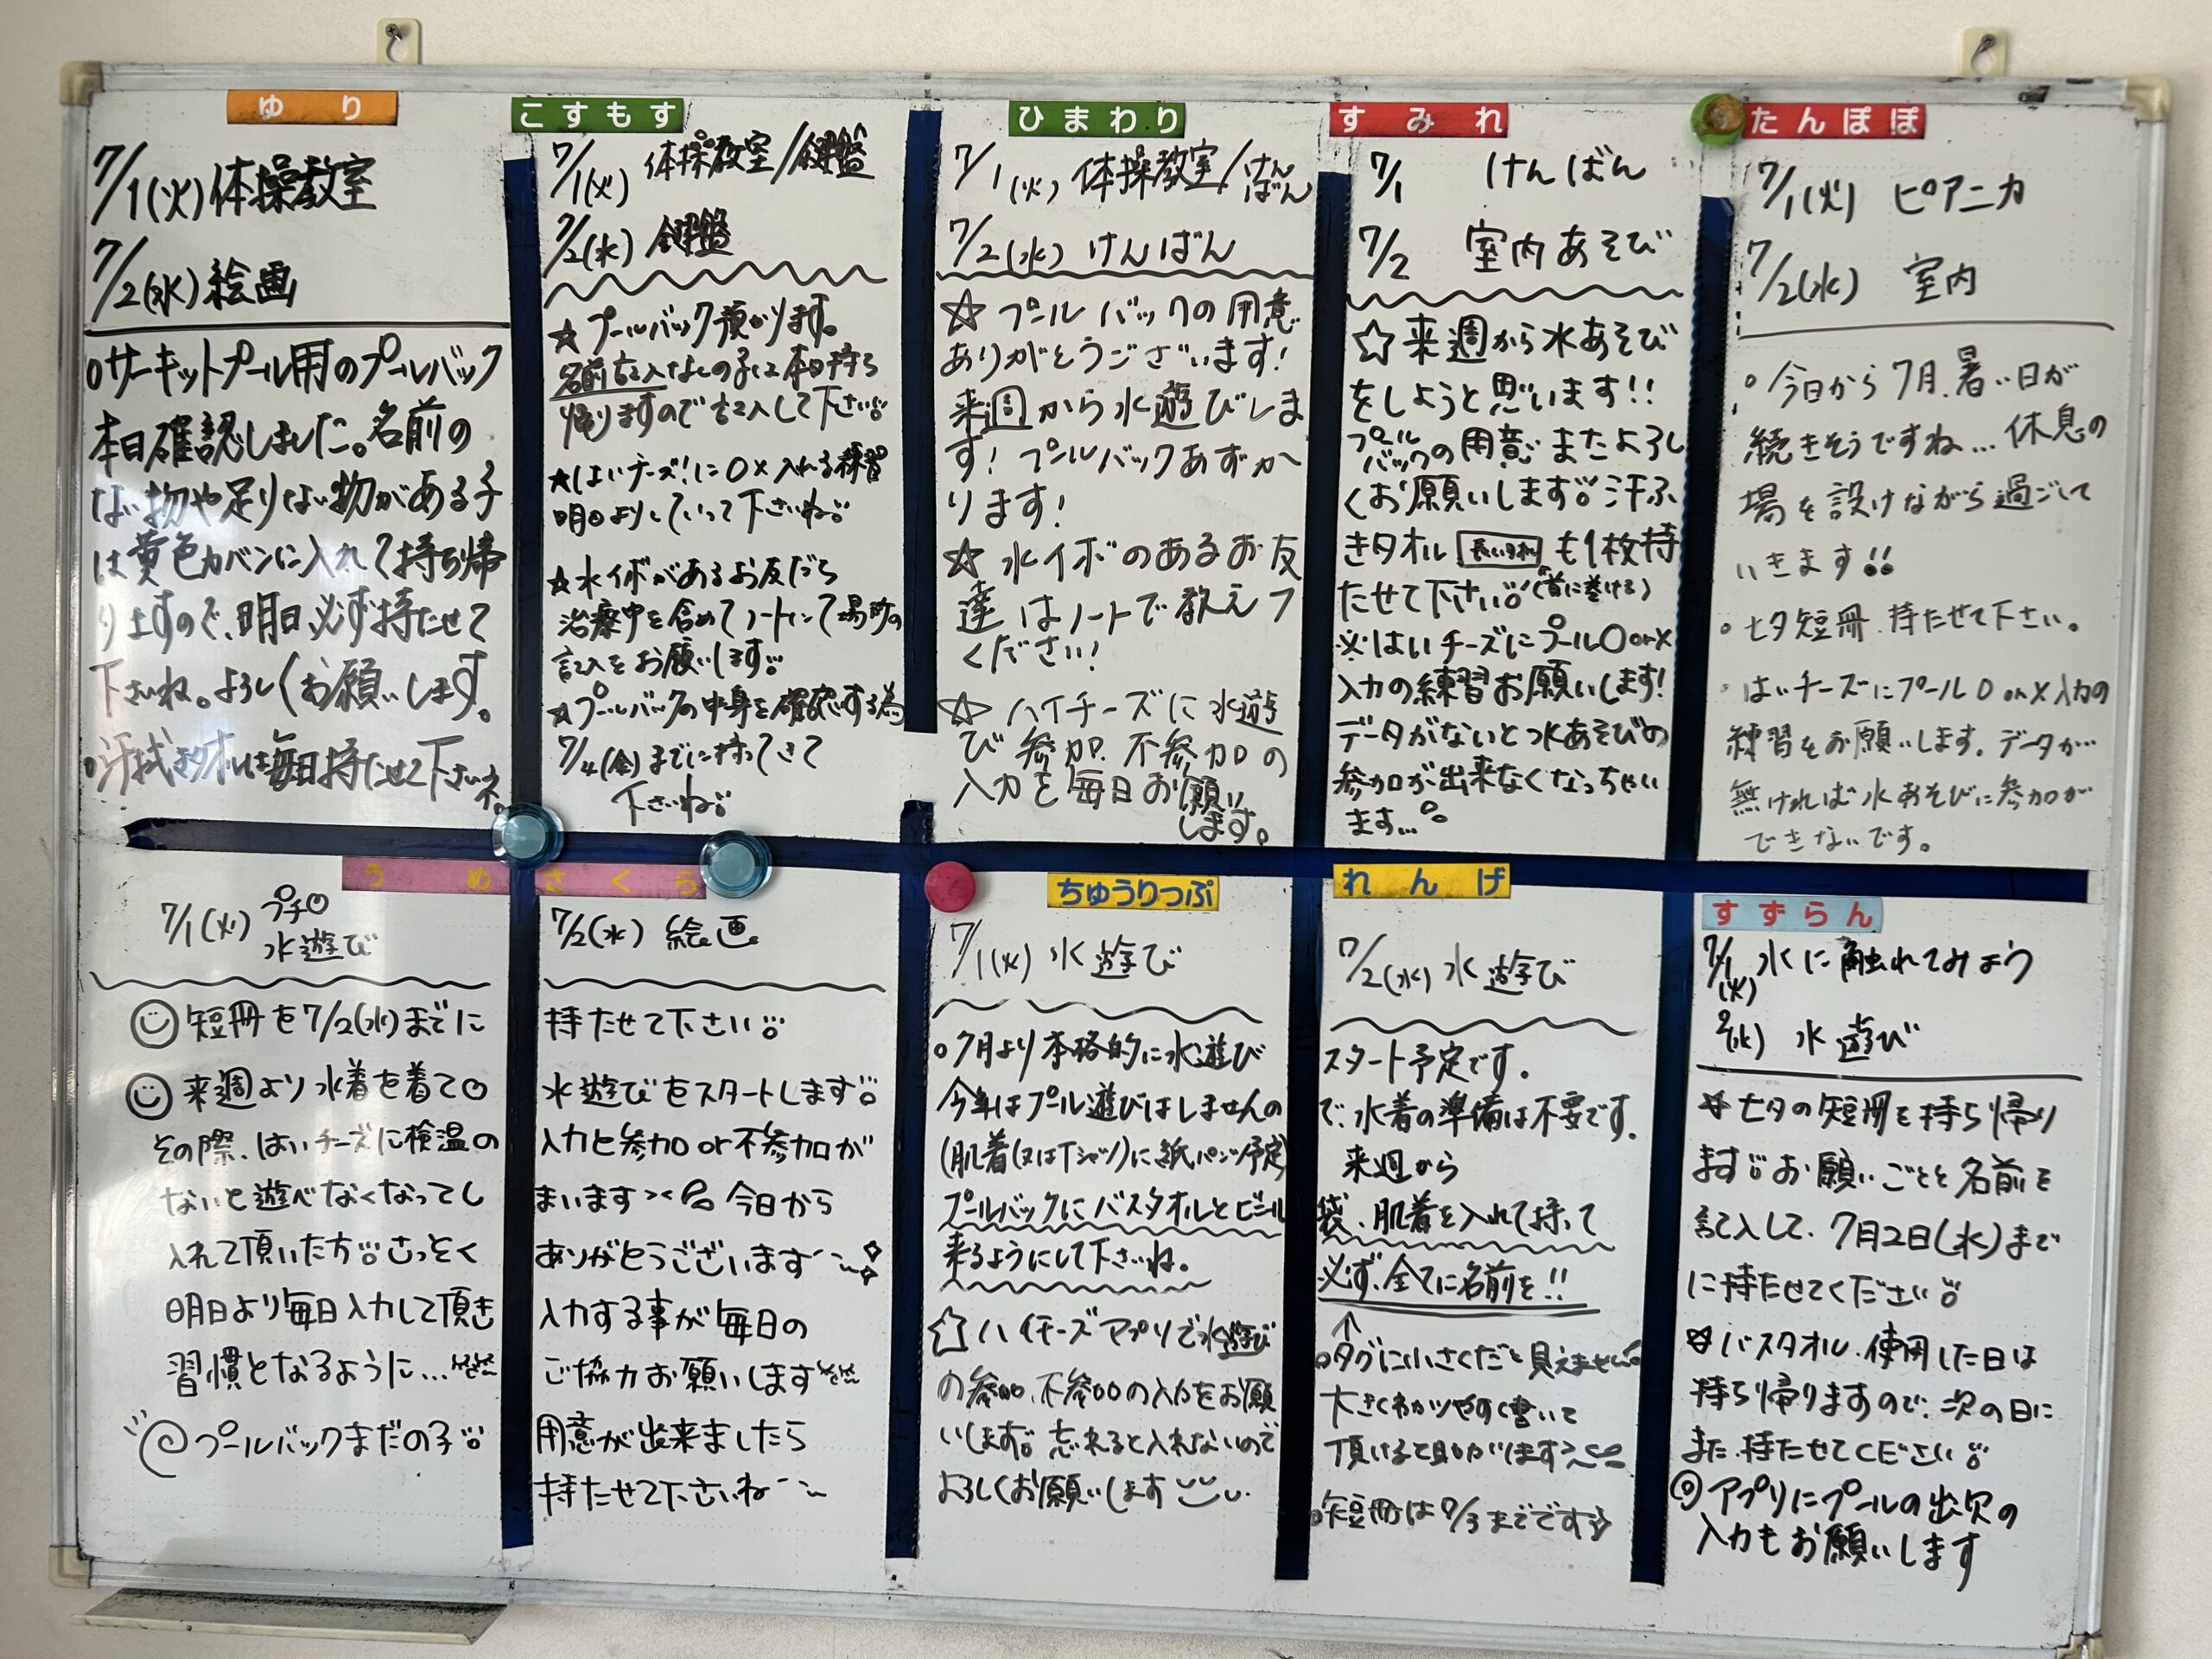 ゆり
7/1(火)体操教室
7/2(水)絵画
○サーキットプール用のプールバック
本日確認しました。名前の
ない物や足りない物がある子
は黄色カバンに入れて持ち帰
りますので、明日必ず持たせて
下さいね。よろしくお願いします。
○汗拭きタオルは毎日持たせて下さいネ。
こすもす
7/1(火) 体操教室/鍵盤
7/2(水) 鍵盤
★プールバック預かります。
名前記入なしの子は本日持ち
帰りますので記入して下さい
★はいチーズ!に○×入れる練習
明日よりしていって下さいね
★水イボがあるお友だち
治療中を含めてノートにて場所の
記入をお願いします
★プールバックの中身を確認する為
7/4(金)までに持ってきて
下さいね
ひまわり
7/1(火) 体操教室/けんばん
7/2(水) けんばん
☆ プールバックの用意
ありがとうございます!
来週から水遊びしま
す!プールバックあずか
ります!
☆ 水イボのあるお友
達はノートで教えて
ください!
☆ ハイチーズに水遊
び参加、不参加の
入力を毎日お願い
します。
すみれ
7/1 けんばん
7/2 室内あそび
☆来週から水あそび
をしようと思います!!
プールバックの用意またよろし
くお願いします 汗ふ
きタオル 長いタオル も1枚持
たせて下さい (首に巻ける)
※はいチーズにプール○or×
入力の練習お願いします!
データがないと水あそびの
参加が出来なくなっちゃい
ます...
たんぽぽ
7/1(火) ピアニカ
7/2(水) 室内
○今日から7月、暑い日が
続きそうですね...休息の
場を設けながら過ごして
いきます!!
○七夕短冊、持たせて下さい。
・はいチーズにプール○or×入力の
練習をお願いします。データが
無ければ水あそびに参加が
できないです。
うめ さくら
7/1(火) プチ 水遊び
7/2(水) 絵画
短冊を7/2(水)までに 持たせて下さい
来週より水着を着て 水遊びをスタートします
その際、はいチーズに検温の 入力と参加or不参加が
ないと遊べなくなってし まいます>< 今日から
入れて頂いた方 さっそく ありがとうございます
明日より毎日入力して頂き 入力する事が毎日の
習慣となるように... ご協力お願いします
プールバックまだの子 用意が出来ましたら
持たせて下さいね
ちゅうりっぷ
7/1(火) 水遊び
れんげ
7/2(水) 水遊び
○7月より本格的に水遊び スタート予定です。
今年はプール遊びはしませんの で、水着の準備は不要です。
(肌着(又はTシャツ)に紙パンツ予定) 来週から
プールバックにバスタオルとビニール 袋、肌着を入れて持って
来るようにして下さいね。 必ず、全てに名前を!!
☆ハイチーズアプリで水遊び
の参加、不参加の入力をお願
いします。忘れると入れないので
よろしくお願いします
↑
○タグに小さくだと見えません
大きくわかりやすく書いて
頂けると助かります
○短冊は7/3までです☆
すずらん
7/1(火) 水に触れてみよう
2(水) 水遊び
☆七夕の短冊を持ち帰り
ます お願いごとと名前を
記入して、7月2日(水)まで
に持たせてください
☆バスタオル、使用した日は
持ち帰りますので、次の日に
また、持たせてください
◎アプリにプールの出欠の
入力もお願いします